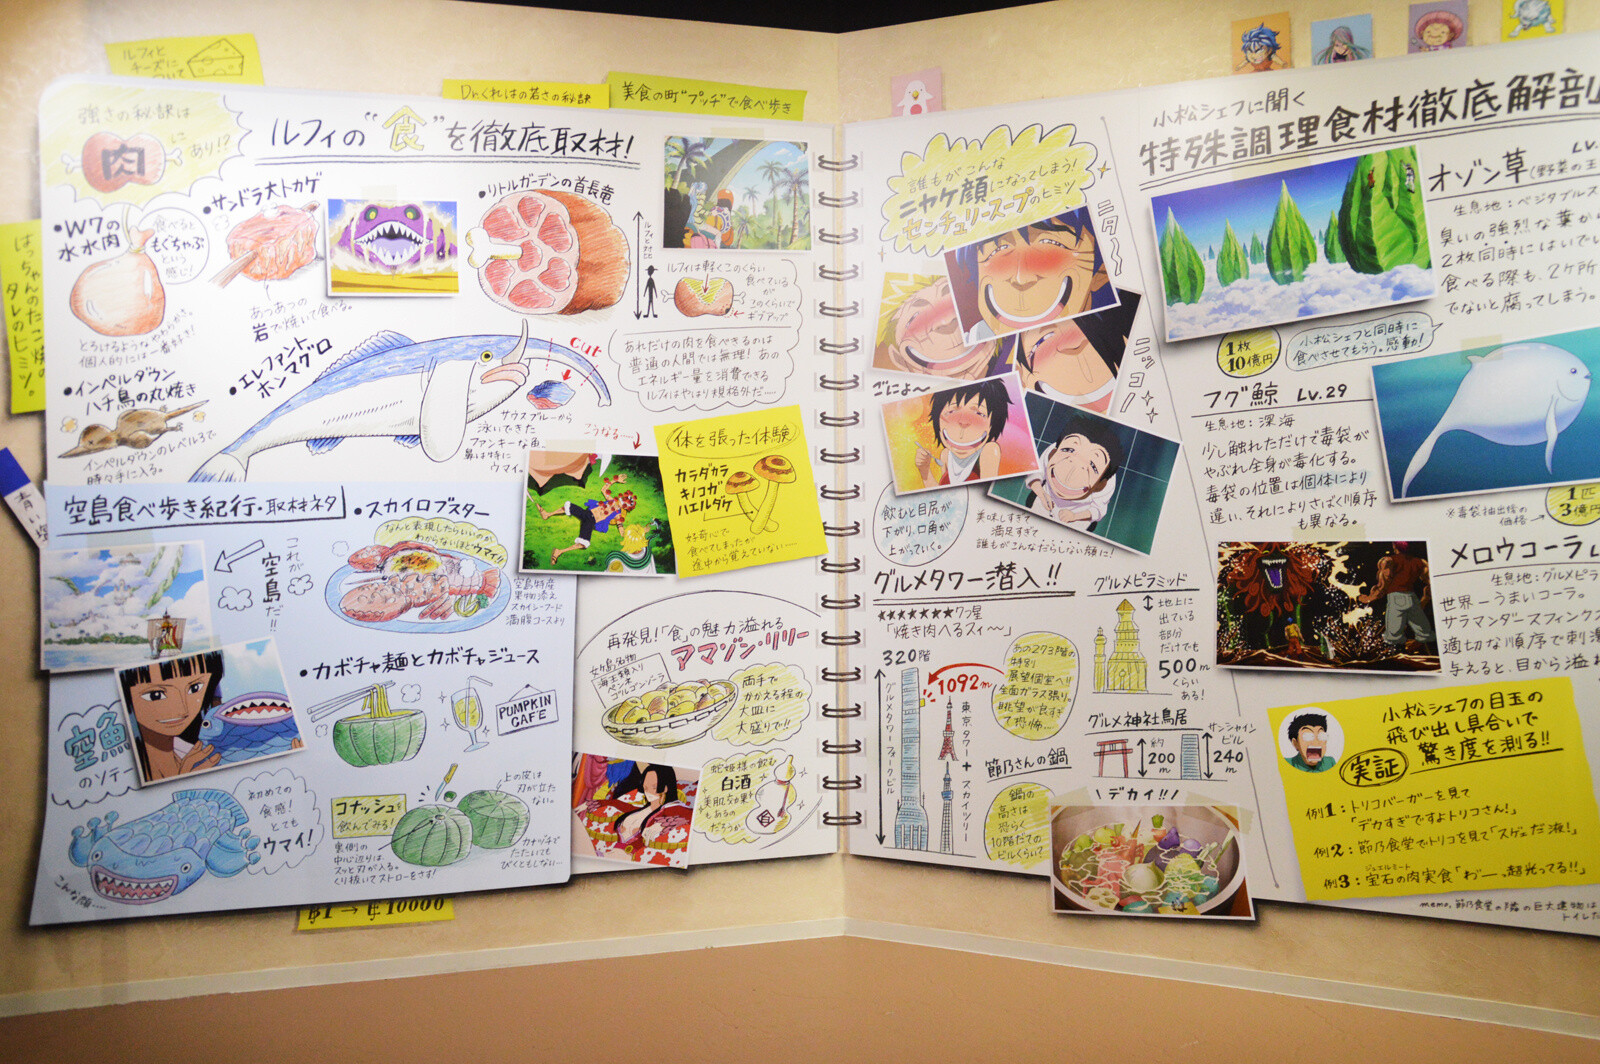 ルフィと
チーズに
ついて
Dr.くれはの若さの秘訣
美食の町"プッチ"で食べ歩き
はっちゃんのたこ焼の
タレのヒミツ。
強さの秘訣は
肉
にあり!?
ルフィの"食"を徹底取材!
・W7の
水水肉
食べると
もぐちゃぷ
という
感じ!
とろけるようなやわらかさ。
個人的には一番好き!
・サンドラ大トカゲ
あつあつの
岩で焼いて食べる。
・リトルガーデンの首長竜
ルフィは軽くこのくらい
食べている
が
このくらいで
ギブアップ
あれだけの肉を食べきるのは
普通の人間では無理!あの
エネルギー量を消費できる
ルフィはやはり規格外だ……
・インペルダウン
ハチ鳥の丸焼き
インペルダウンのレベル3で
時々手に入る。
・エレファント
ホンマグロ
cut
サウスブルーから
泳いできた
ファンキーな魚。
鼻は特に
ウマイ。
こうなる……
体を張った体験
カラダカラ
キノコガ
ハエルダケ
好奇心で
食べてしまったが
途中から覚えていない……
空島食べ歩き紀行・取材ネタ
これが
空島だ!!
・スカイロブスター
なんと表現したらいいのか
わからないほどウマイ!!
空島特産
果物添え
スカイシーフード
満腹コースより
・カボチャ麺とカボチャジュース
PUMPKIN
CAFE
空魚
のソテー
初めての
食感!
とても
ウマイ!
こんな顔……
コナッシュを
飲んでみる!
裏側の
中心辺りは
スッと刃が入る。
くり抜いてストローをさす!
上の皮は
刃が立た
ない。
カナヅチで
たたいても
びくともしない…
再発見!「食」の魅力溢れる
アマゾン・リリー
女ヶ島名物
海王類入り
ペンネ
ゴルゴンゾーラ
両手で
かかえる程の
大皿に
大盛りで!!
蛇姫様の飲む
白酒
美肌効果も
あるの
だろうか
誰もがこんな
ニヤケ顔になってしまう!
センチュリースープのヒミツ
ニタ〜
ニッコ〜
ごにょ〜
飲むと目尻が
下がり、口角が
上がっていく。
美味しすぎて
満足すぎて
誰もがこんなだらしない顔に!
グルメタワー潜入!!
★★★★★★★7つ星
「焼き肉へるスィ〜」
320階
グルメタワー フォークビル
1092m
東京タワー+スカイツリー
あの273階の
特別
展望個室へ!!
全面ガラス張り。
眺望が良すぎ
て恐怖…
グルメピラミッド
地上に
出ている
部分
だけでも
500m
くらい
ある!
グルメ神社鳥居
約
200
m
サンシャイン
ビル
240
m
節乃さんの鍋
鍋の
高さは
恐らく
10階だての
ビルくらい?
デカイ!!
小松シェフに聞く
特殊調理食材徹底解剖
オゾン草(野菜の王
LV.
生息地:ベジタブルス
臭いの強烈な葉から
2枚同時にはいでい
食べる際も、2ケ所
でないと腐ってしまう。
1枚
10億円
小松シェフと同時に
食べさせてもらう。感動!
フグ鯨 Lv.29
生息地:深海
少し触れただけで毒袋が
やぶれ全身が毒化する。
毒袋の位置は個体により
違い、それによりさばく順序
も異なる。
※毒袋抽出後の
価格→
1匹
3億円
メロウコーラ
生息地:グルメピラ
世界一うまいコーラ。
サラマンダースフィンクス
適切な順序で刺激
与えると、目から溢れ
小松シェフの目玉の
飛び出し具合いで
驚き度を測る!!
実証
例1:トリコバーガーを見て
「デカすぎですよトリコさん!」
例2:節乃食堂でトリコを見て「スゲェだ液!」
例3:宝石の肉実食「わ゛ー、超光ってる!!」
ジュエルミート
memo.節乃食堂の隣の巨大建物は
トイレだ